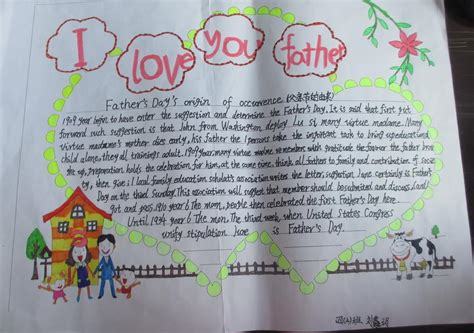 I love you father
Father's Day's origin of occurrence (父亲节的由来)
1909 year begin to have enter the suggestion and determine the Father's Day. It is said that first put
forward such suggestion is that John from Washington deploy Lu si many virtue madame. Many
virtue madame's mother dies early, his father the l persons take the important task to bring up educational
child alone, they all training adult. 1909 year, many virtue we've remember with gratitude the favour the father bring
the up, preparation holds the celebration for him, at the same time, think all fathers to family and contribution of socie
ty, then give il local family education scholar's association writes the letter, suggestion June certainly is Father's
Day on the third Sunday. This association will suggest that member should be submitted and discuss, and
got and pass. 1910 year 6 The mon, people then celebrated the first Father's Day here.
Until 1934 year 6 The mon. The third week, when United States Congress
unify stipulation June is Father's Day.
四(4)班